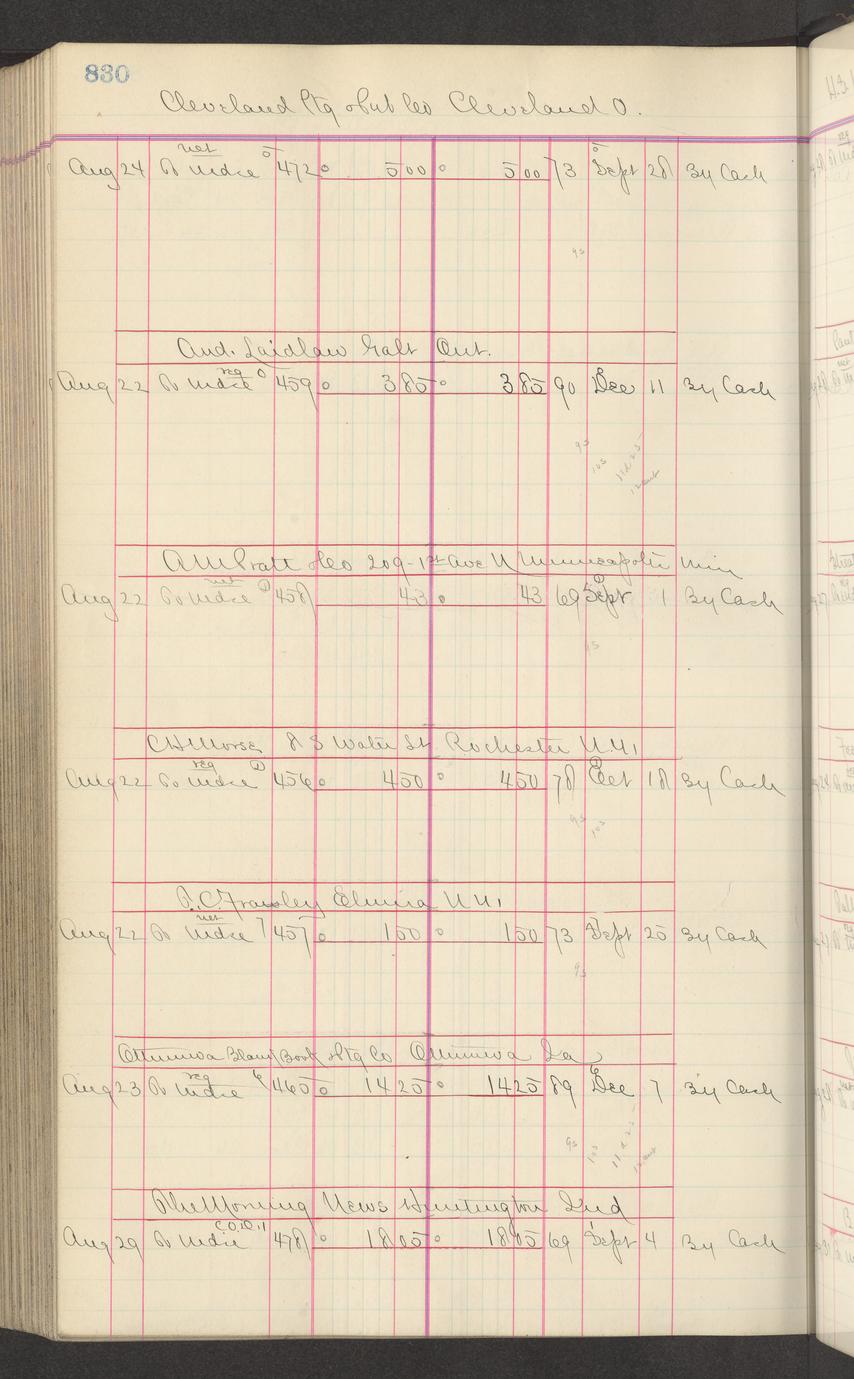 830
Cleveland Ptg & Pub Co Cleveland O.
net
Aug 24 To Mdse 472 5 00 5 00 73 Sept 28 By Cash
9s
And. Laidlaw Galt Ont.
reg
Aug 22 To Mdse 459 3 85 3 85 90 Dec 11 By Cash
9s 10s
A M Pratt & Co 209-1st Ave N Minneapolis Min
net
Aug 22 To Mdse 458 43 43 69 Sept 1 By Cash
9s
C H Morse 8 S Water St Rochester N.Y.
reg
Aug 22 To Mdse 456 4 50 4 50 78 Oct 18 By Cash
9s 10s
Elmira N.Y.
net
Aug 22 To Mdse 457 1 50 1 50 73 Sept 25 By Cash
9s
Ottumwa Blank Book Mfg Co Ottumwa Ia
reg
Aug 23 To Mdse 465 14 25 14 25 89 Dec 7 By Cash
9s 10s
The Morning News Huntington Ind
C.O.D.
Aug 29 To Mdse 478 18 05 18 05 69 Sept 4 By Cash